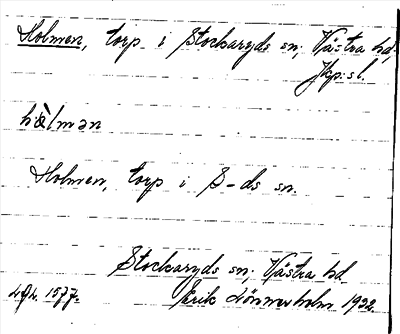 Holmen, torp i Stockaryds sn, Västra hd,
Jkp:s l.
hòlmən
Holmen, torp i S-ds sn.
Stockaryds sn, Västra hd.
1577. Erik Lönnerholm 1932.